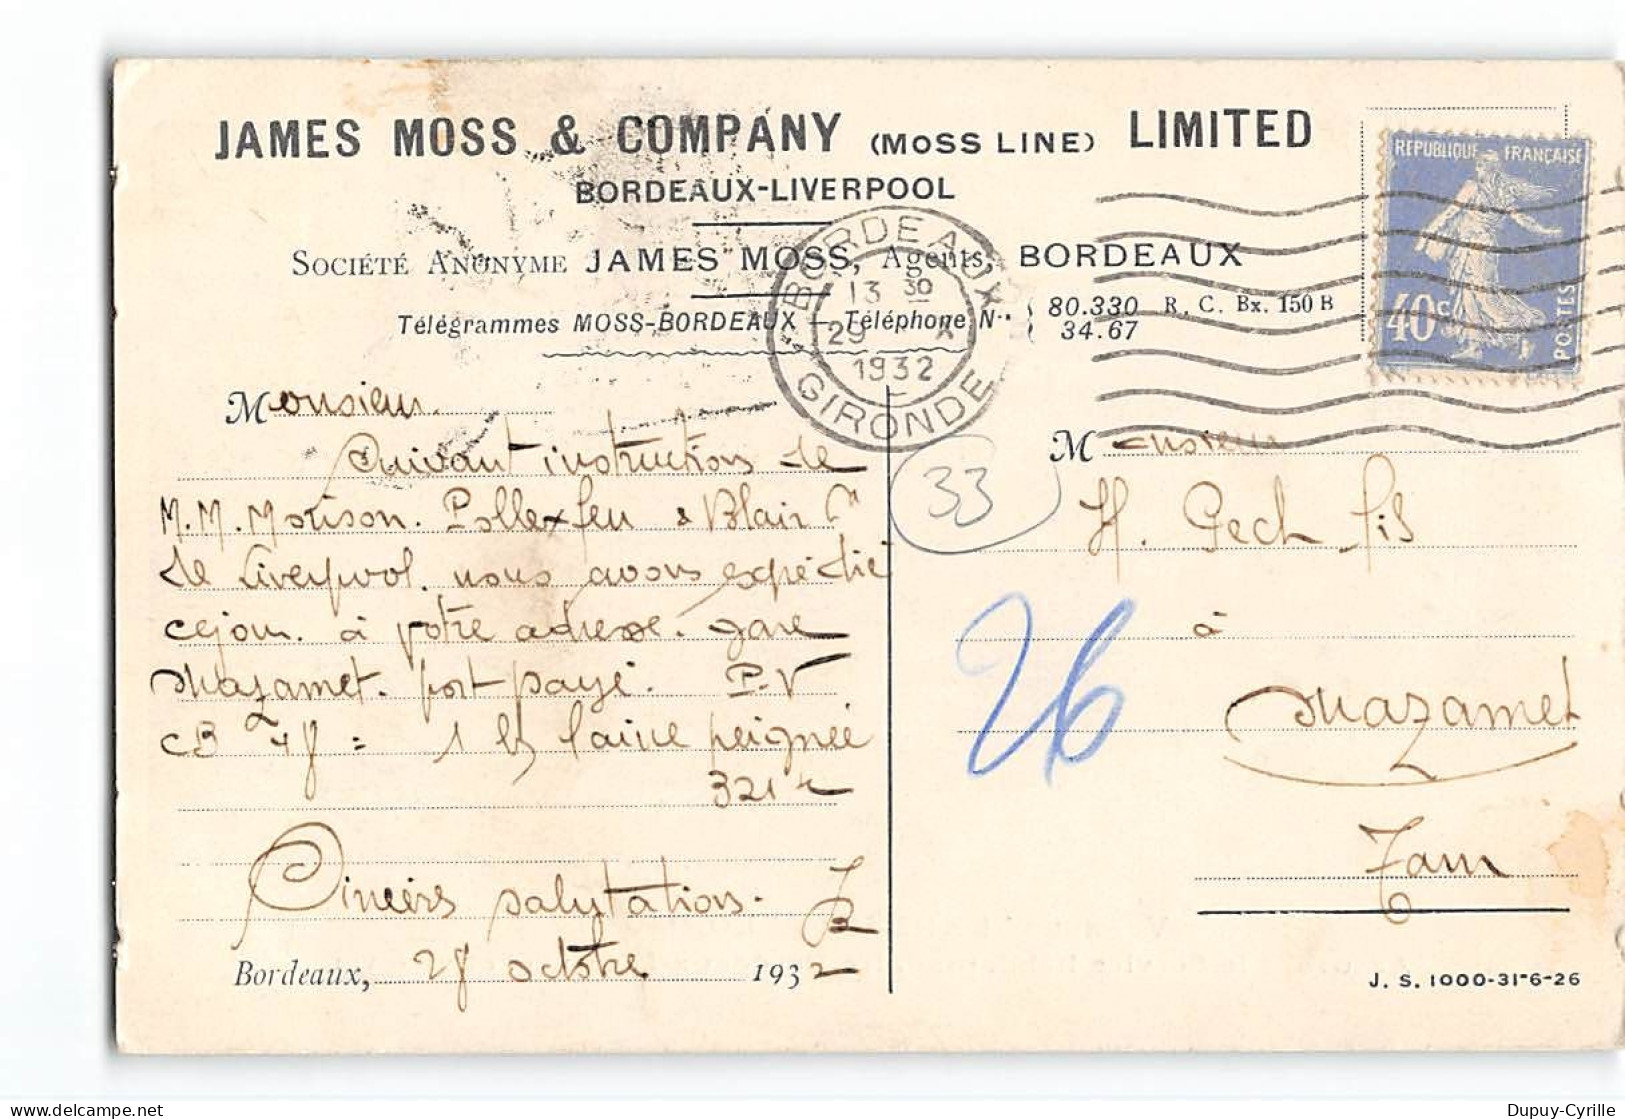 JAMES MOSS & COMPANY (MOSS LINE) LIMITED
BORDEAUX-LIVERPOOL
SOCIÉTÉ ANONYME JAMES MOSS, Agents, BORDEAUX
Télégrammes MOSS-BORDEAUX — Téléphone Nos { 80.330 R. C. Bx. 150 B
34.67
REPUBLIQUE FRANÇAISE
40c
POSTES
BORDEAUX
13 30
29 X
1932
GIRONDE
Monsieur.
Suivant instructions de
M.M. Morison. Pollexfen & Blair
de Liverpool. nous avons expédié
ce jour. à votre adresse. gare
Mazamet. port payé. P.V
CB 48 = 1 b/ laine peignée
321 k
Sincères salutations.
Bordeaux, 28 octobre 1932
33
Monsieur
H. Pech fils
à
Mazamet
Tarn
26
J. S. 1000-31-6-26
Dupuy-Cyrille
https://www.delcampe.net